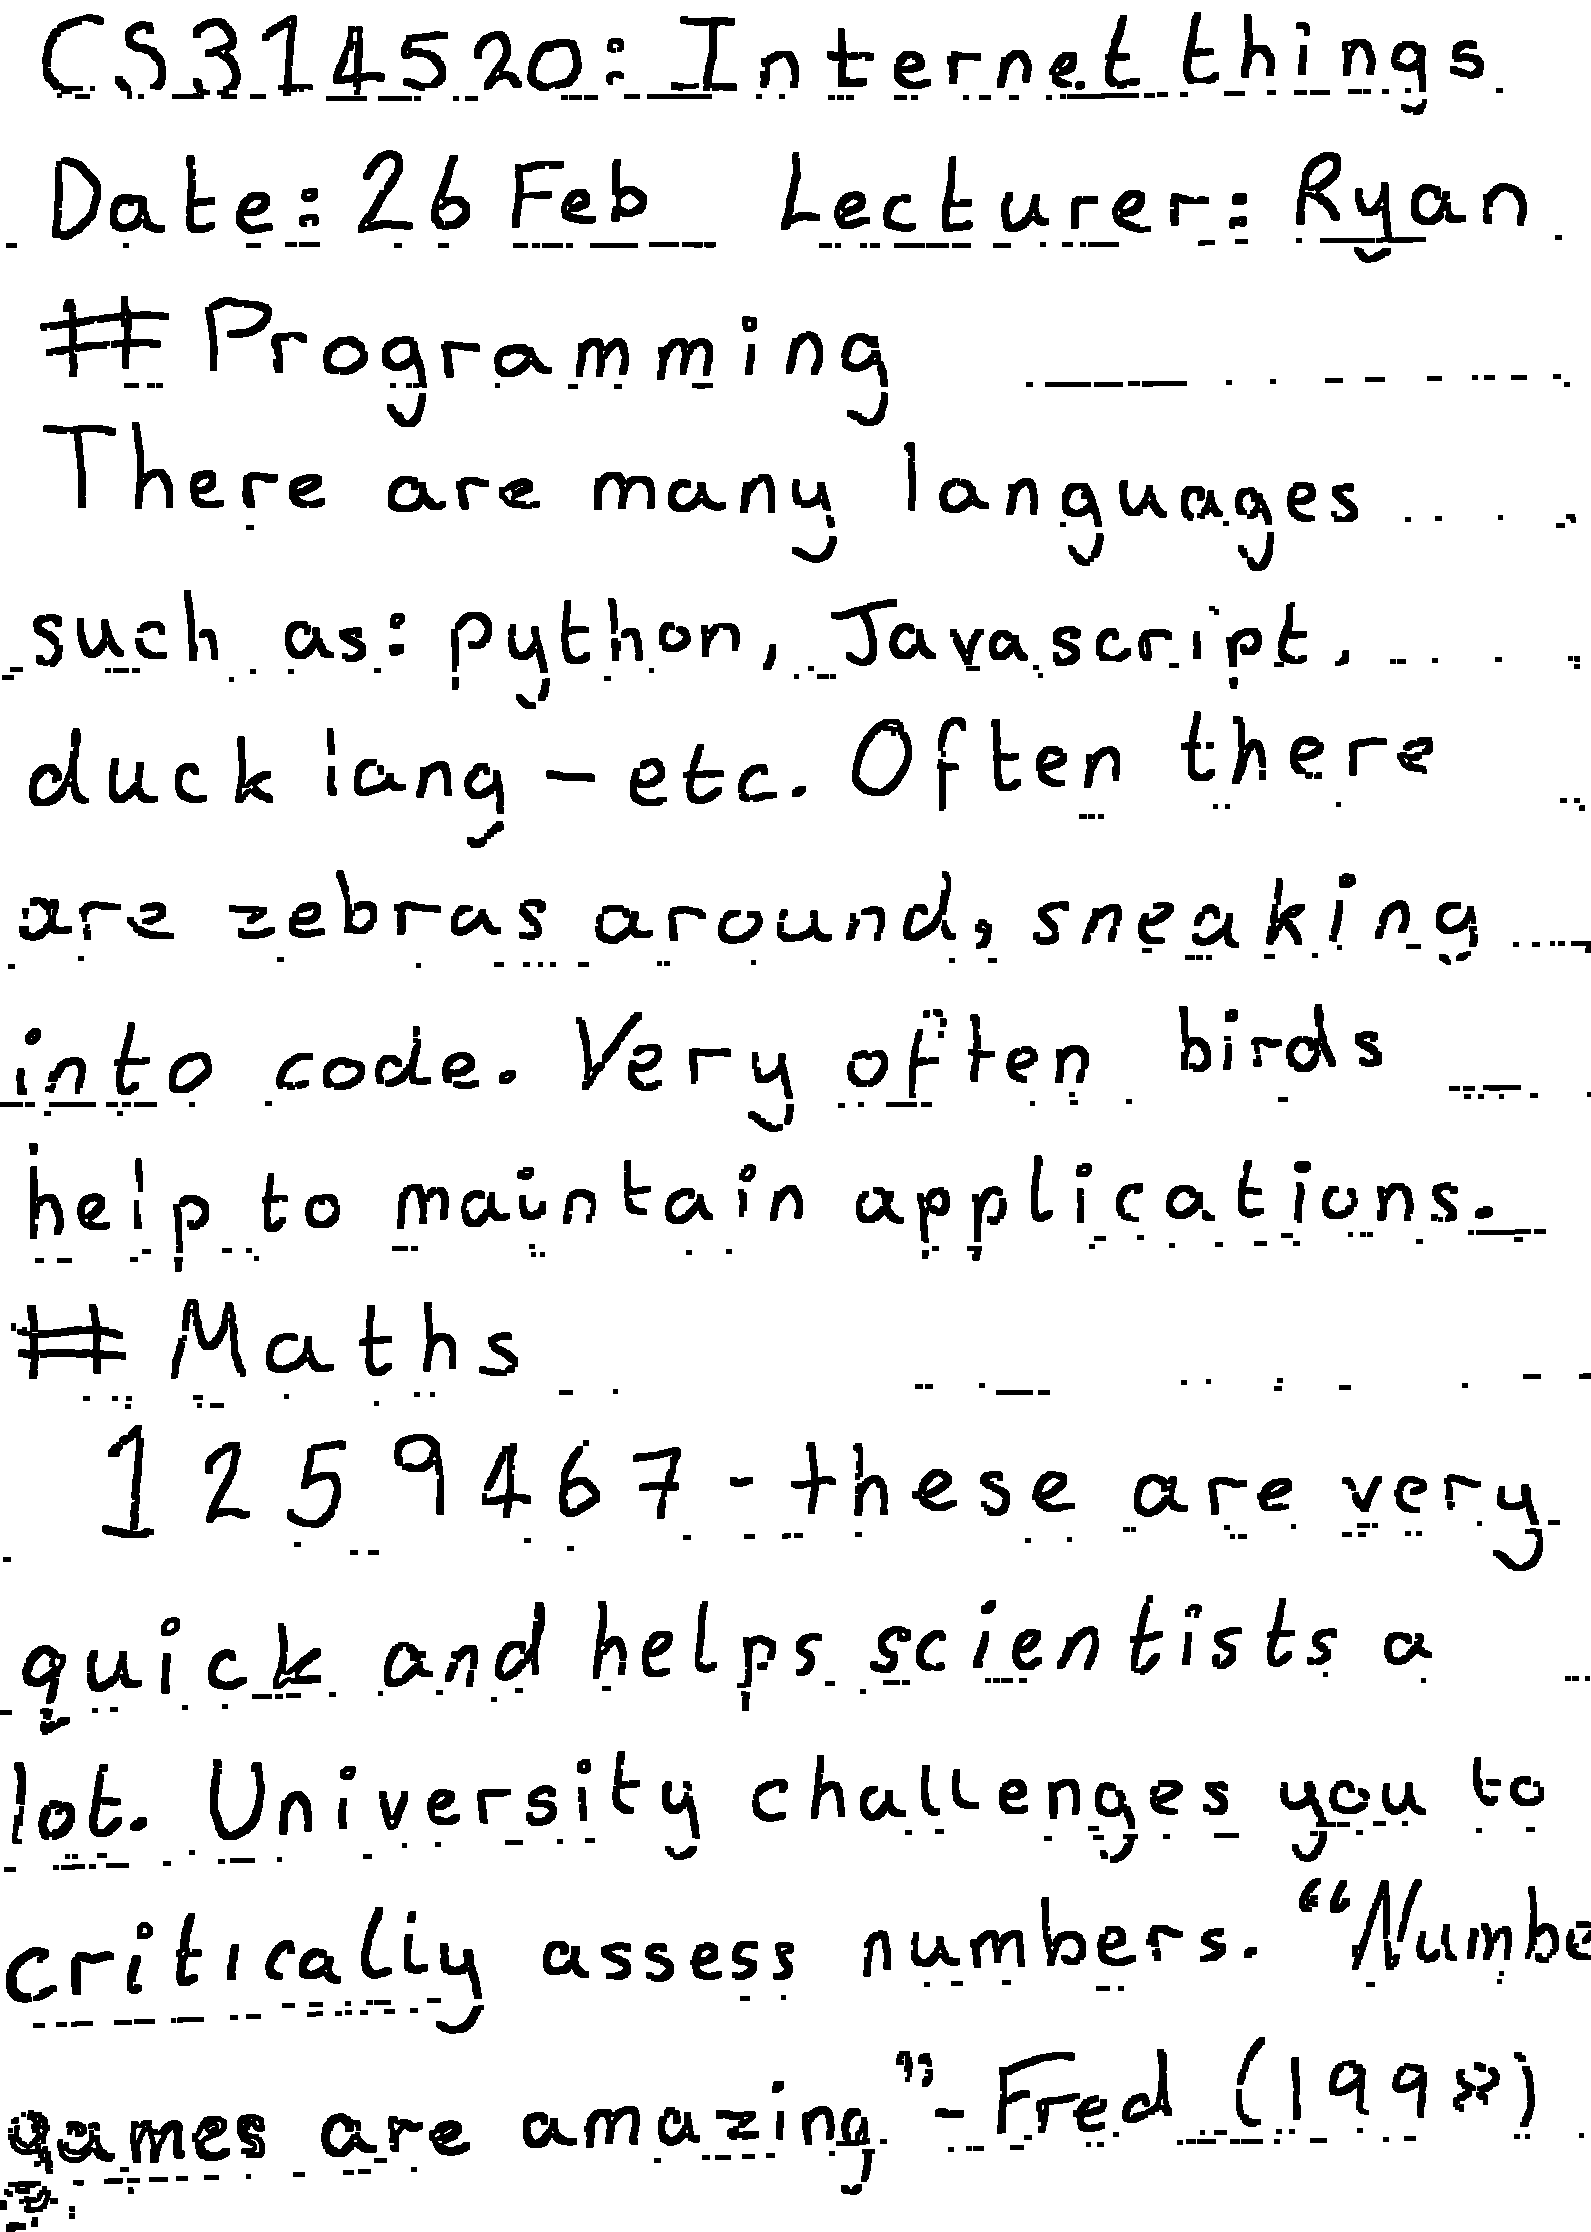 CS314520: Internet things
Date: 26 Feb Lecturer: Ryan
# Programming
There are many languages
such as: python, Javascript,
duck lang - etc. Often there
are zebras around, sneaking
into code. Very often birds
help to maintain applications.
# Maths
1259467 - these are very
quick and helps scientists a
lot. University challenges you to
critically assess numbers. “Numbe
games are amazing” - Fred (1998)